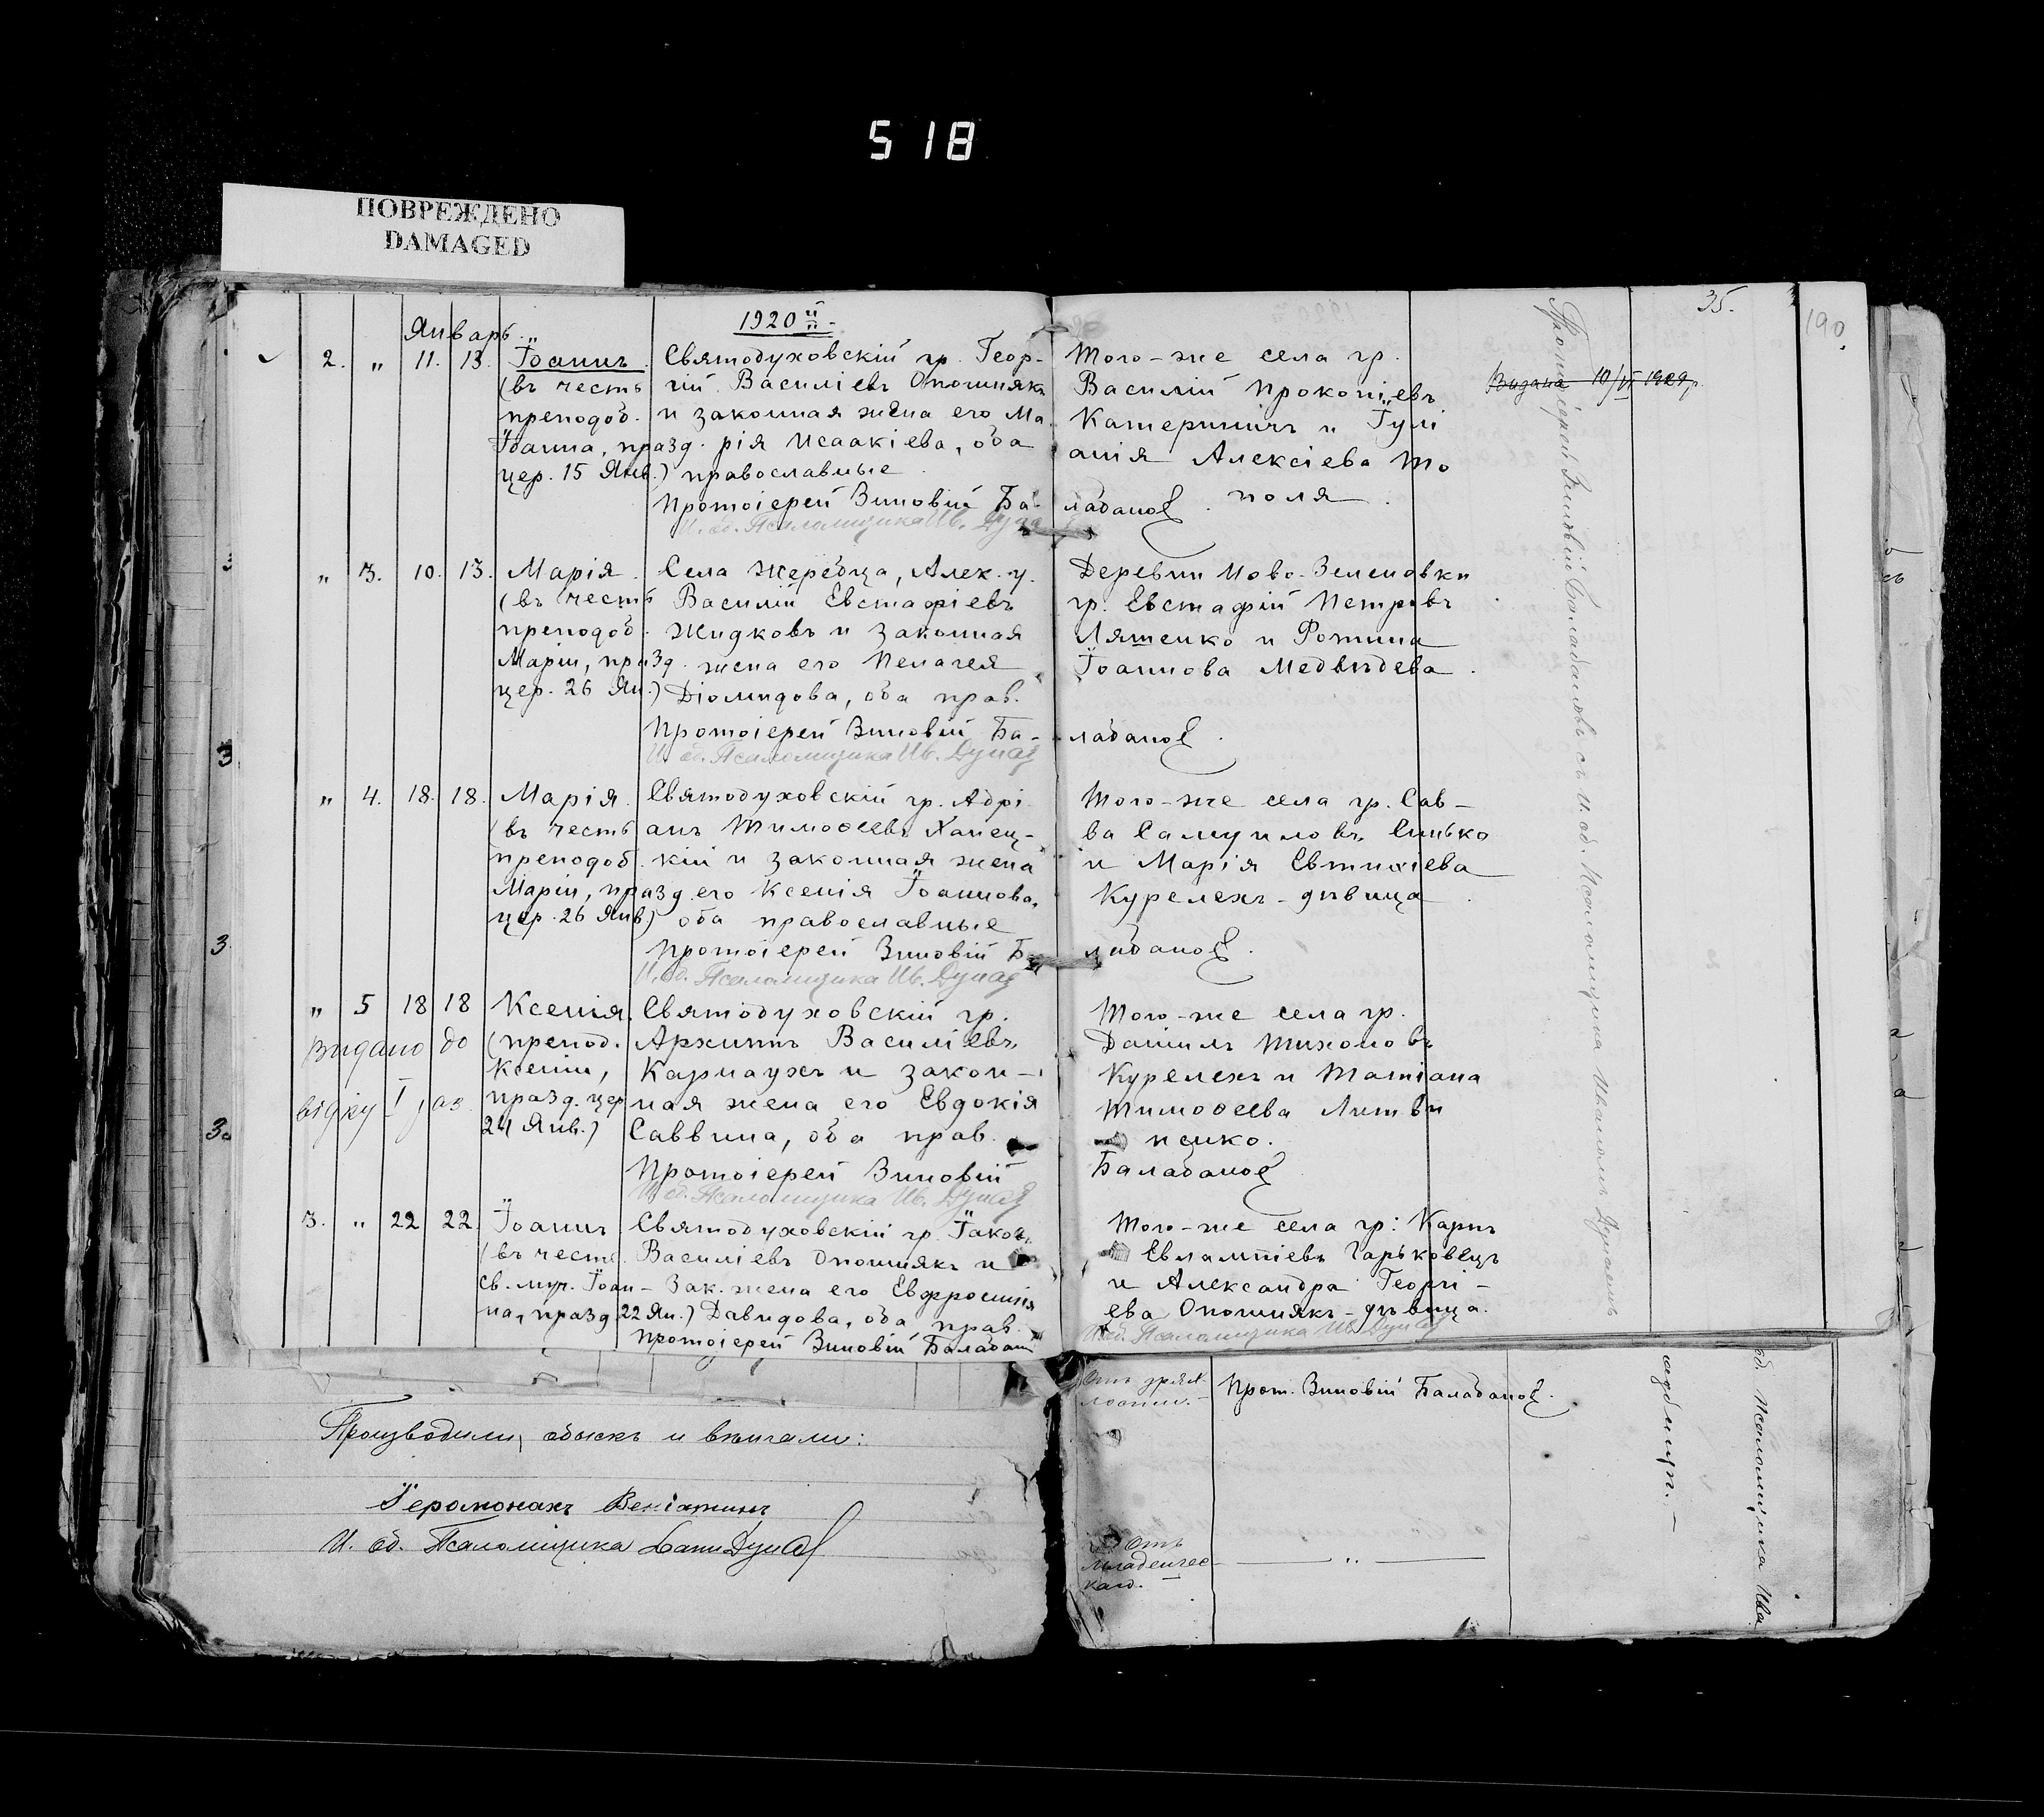 518
ПОВРЕЖДЕНО
DAMAGED
35.
190.
1920
Январь
2. " 11. 13. Іоаннъ.
(въ честь
преподоб.
Іоанна, празд.
цер. 15 Янв.)
Святодуховскій гр. Геор-
гій Василіевъ Опошнякъ
и законная жена его Ма-
рія Исаакіева, оба
православные
Протоіерей Зиновій Ба-
И. об. Псаломщика Ив. Дунай
Того-же села гр.
Василій Прокопіевъ
Катериничъ и Іулі
анія Алексіева То
поля.
лабанов
Видана 10/VI 1929 р.
" 3. 10. 13. Марія.
(въ честь
преподоб.
Маріи, празд.
цер. 26 Ян.)
Села Жеребца, Алек. у.
Василій Евстафіевъ
Жидковъ и законная
жена его Пелагея
Діомидова, оба прав.
Протоіерей Зиновій Ба-
И. об. Псаломщика Ив. Дунай
Деревни Ново-Зеленовки
гр. Евстафій Петровъ
Ляшенко и Фотина
Іоаннова Медвѣдева.
лабанов.
" 4. 18. 18. Марія.
(въ честь
преподоб.
Маріи, празд.
цер. 26 Янв)
Святодуховскій гр. Адрі
анъ Тимоѳеевъ Ханец-
кій и законная жена
его Ксенія Іоаннова,
оба православные
Протоіерей Зиновій Ба
И. об. Псаломщика Ив. Дунай
Того-же села гр. Сав-
ва Самуиловъ Синько
и Марія Евтихіева
Курелехъ-дѣвица.
лабанов.
" 5 18 18 Ксенія.
(препод.
Ксеніи,
празд. цер
24 Янв.)
видано до
відку I раз
Святодуховскій гр.
Архиппъ Василіевъ
Карнаухъ и закон-
ная жена его Евдокія
Саввина, оба прав.
Протоіерей Зиновій
И. об. Псаломщика Ив. Дунай
Того-же села гр.
Даніилъ Тихоновъ
Курелехъ и Татіана
Тимоѳеева Литви
ненко.
Балабанов
3. " 22 22. Іоаннъ
(въ честь
св. муч. Іоан-
на, празд. 22 Ян.)
Святодуховскій гр. Іаковъ
Василіевъ Опошнякъ и
зак. жена его Евфросинія
Давидова, оба прав.
Протоіерей Зиновій Балабан
Того-же села гр. Карпъ
Евлампіевъ Гарьковецъ
и Александра Георгі-
ева Опошнякъ-дѣвица.
И. об. Псаломщика Ив. Дунай
Протоіерей Зиновій Балабановъ съ и. об. Псаломщика Иваномъ Дунаемъ
Производили обыскъ и вѣнчали:
Іеромонахъ Веніаминъ
И. об. Псаломщика Дунай
Отъ дрях
лости.-
Прот. Зиновій Балабанов.
Отъ
младенчес-
каго.-
об. Псаломщика Ива